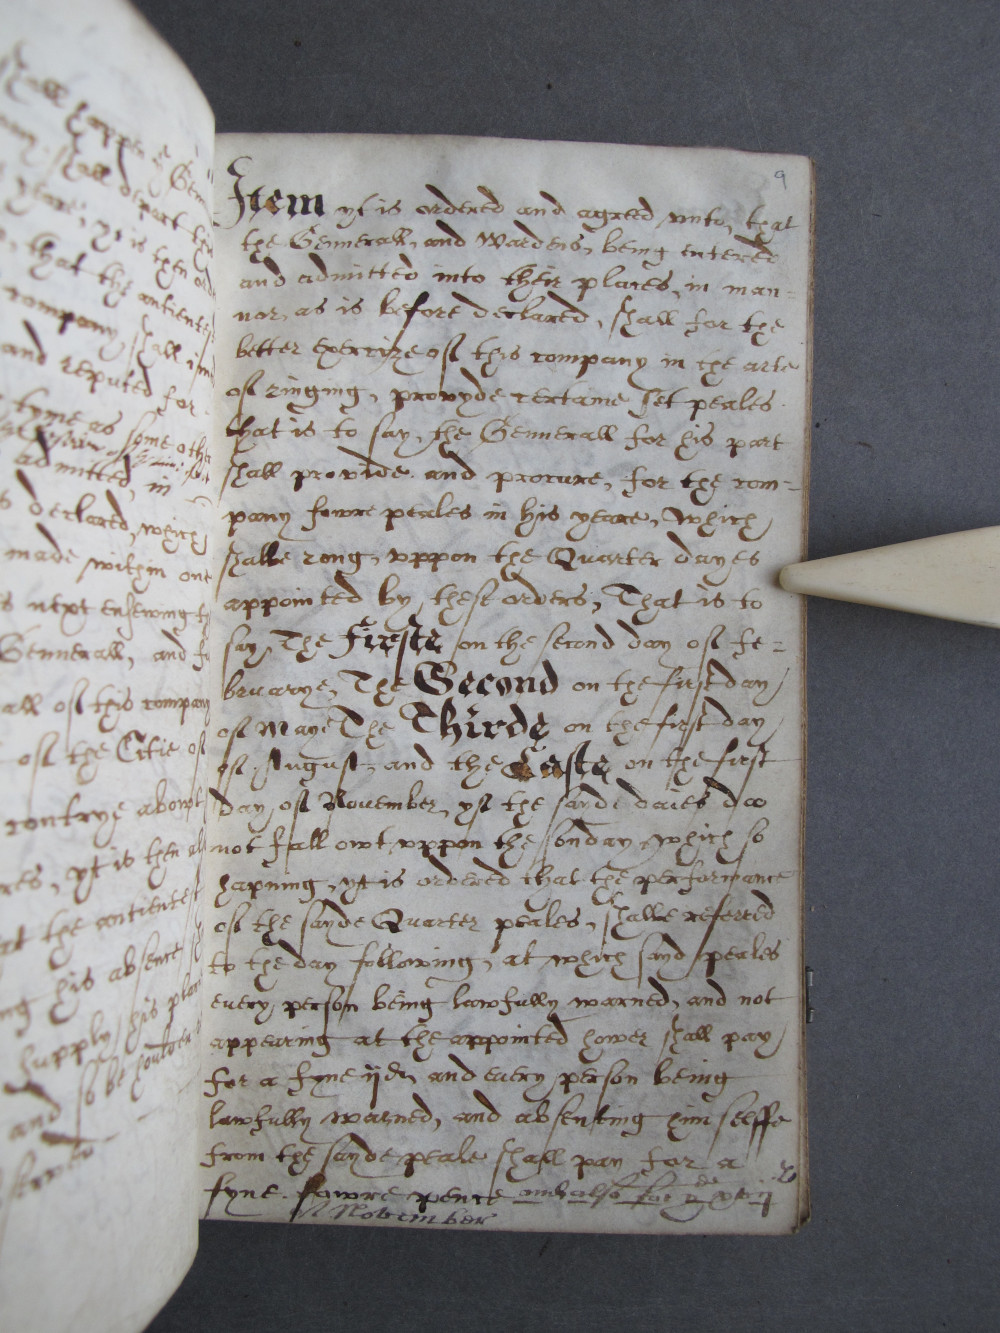 shall happen yt Gen
shall depart this
yeare, yt is then orde
that the antientest
company, shall i
and reputed for
tyme as some other
admitted, in
declared, which
made within one
next ensewing
Gennerall, and
all of this company
of the Citie of
contrye about
yt is then al
at the antientest
ing his absence
supply his place
and so be
9
Item yt is ordered and agreed unto, that
the Gennerall, and Wardens, being entered
and admitted into their places, in man-
nor, as is before declared, shall for the
better exercize of this company in the arte
of ringing, provyde certaine set peales.
that is to say, the Gennerall for his part
shall provide and procure, for the com-
pany fowre peales in his yeare, Which
shalbe rong, uppon the Quarter dayes
appointed by these orders, That is to
say, The Firste on the second day of fe-
bruarye, The Second on the first day
of Maye The Thirde on the first day
of August, and the Laste on the first
day of November, yf the sayde daies doo
not fall owt uppon the sonday, which so
hapning, yt is ordered that the performance
of the sayde Quarter peales, shalbe referred
to the day following, at which sayd peales
every person being lawfully warned, and not
appearing at the appointed hower shall pay
for a fyne ijd, and every person being
lawfully warned, and absenting him selffe
from the sayde peale shall pay for a
fyne fowre pence and also for
November